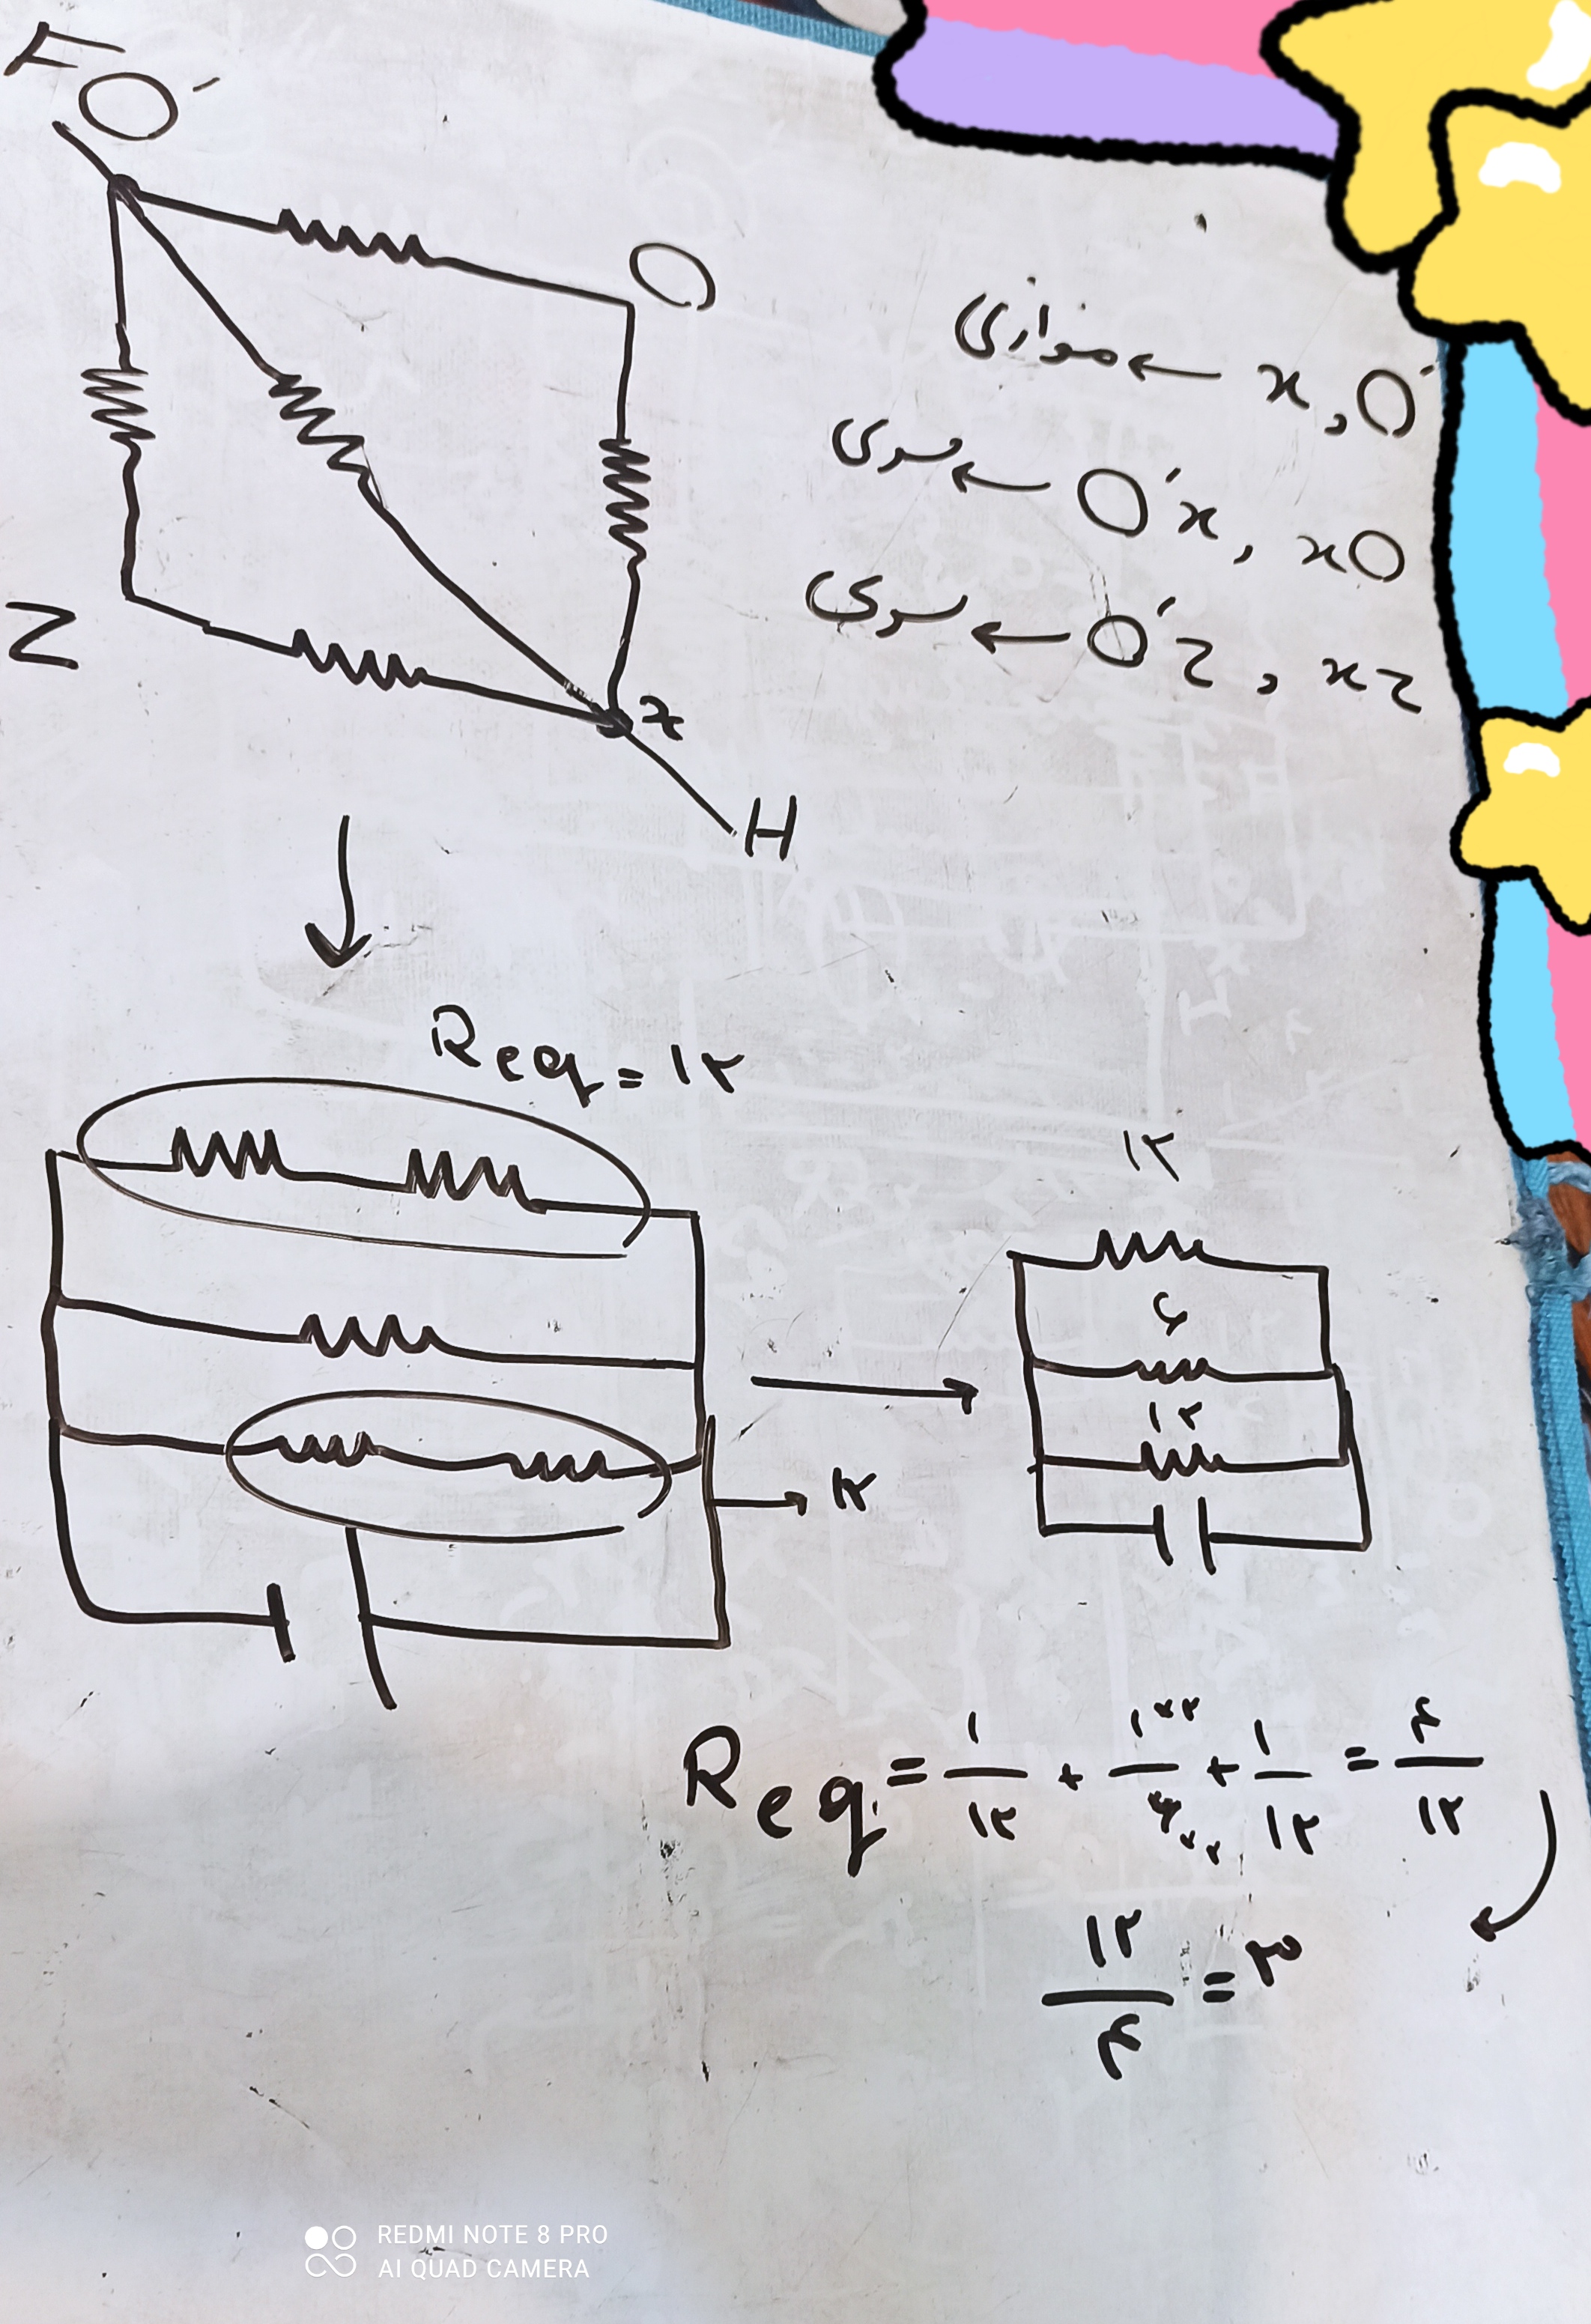 F
O'
O
x, O' ← موازی
O'x, xO ← سری
O'z, xz ← سری
Z
x
H
Req = ۱۲
۱۲
۶
۱۲
۱۲
Req = ۱/۱۲ + ۱×۲/۶×۲ + ۱/۱۲ = ۴/۱۲
۱۲/۴ = ۳
REDMI NOTE 8 PRO
AI QUAD CAMERA